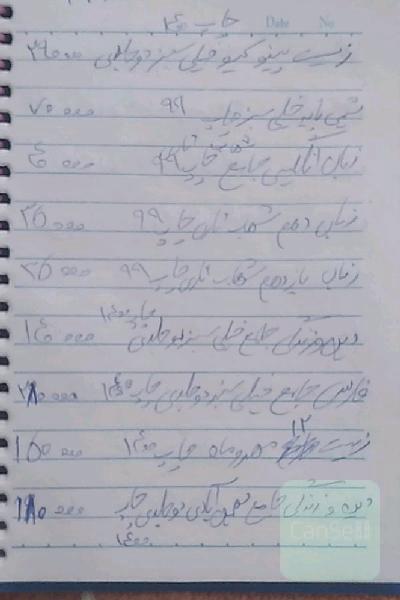 چاپ ۱۴۰۰
Date No
زیست پینوکیو خیلی سبز دو جلدی ۲۹۰۰۰۰
شیمی پایه خیلی سبز چاپ ۹۹ ۷۰۰۰۰
زبان انگلیسی جامع چاپ ۹۹ ۰۰۰۰
زبان دهم شهاب اناری چاپ ۹۹ ۳۵۰۰۰
زبان یازدهم شهاب اناری چاپ ۹۹ ۳۵۰۰۰
دین و زندگی جامع خیلی سبز دو جلدی چاپ ۱۴۰۰ ۱۴۰۰۰۰
فارسی جامع خیلی سبز دو جلدی چاپ ۱۴۰۰ ۲۸۰۰۰۰
زیست ۱۲ مهروماه چاپ ۱۴۰۰ ۱۵۰۰۰۰
دین و زندگی جامع دو جلدی چاپ ۱۴۰۰ ۱۸۰۰۰۰
CanSell